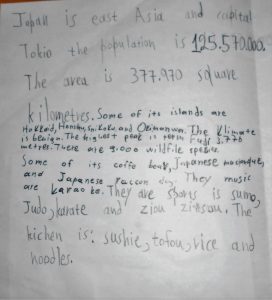 Japan is east Asia and capital
Tokio the population is 125.570.000.
The area is 377.970 square
kilometres. Some of its islands are
Hokkaid, Honshu, Shikoku and Okinanwa. The klimate
is benign. The highest peak is 3.770
metres. There are 9.000 wildfile specise
Some of its are Japanese macaque,
and Japanese raccon dog. They music
are karaoke. They are sports is sumo,
Judo, karate and ziou zitsou. The
kichen is: sushie, tofou, rice and
noodles.